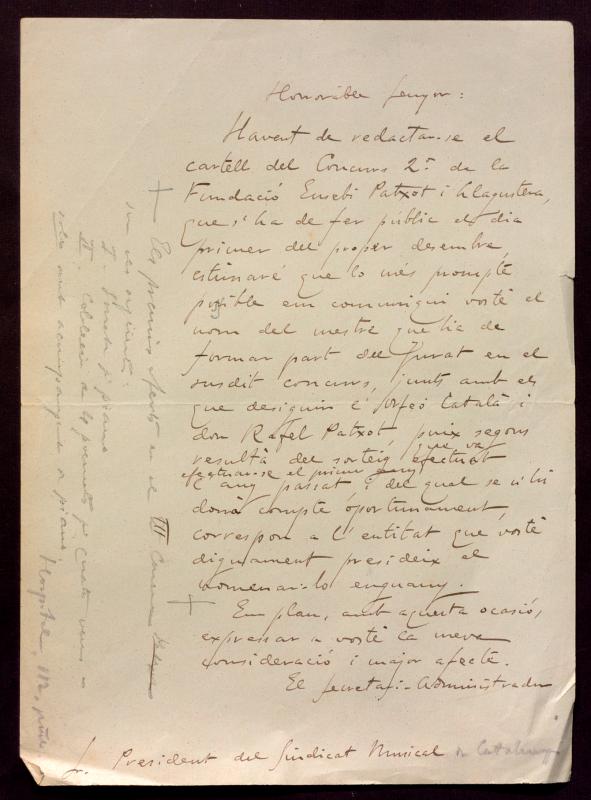 Honorable Senyor:
Havent de redactar-se el
cartell del Concurs 2n de la
Fundació Eusebi Patxot i Llagustera,
que s'ha de fer públic el dia
primer del proper desembre,
estimaré que lo més prompte
possible em comuniqui vostè el
nom del mestre que ha de
formar part del Jurat en el
susdit concurs, junts amb els
que designin l'Orfeó Català i
don Rafel Patxot, puix segons
que va
resultà del sorteig efectuat
efectuar-se el primer any
l'any passat i del qual se li
donà compte oportunament,
correspon a l'entitat que vostè
dignament presideix el
nomenar-lo enguany.
Em plau, amb aquesta ocasió,
expressar a vostè la meva
consideració i major afecte.
El Secretari-Administrador
Sr. President del Sindicat Musical de Catalunya
Els premis oferts en el III Concurs
son els següents:
I - Sonata per piano
II - Col·lecció de
amb acompanyament de piano
Hospital, 112,